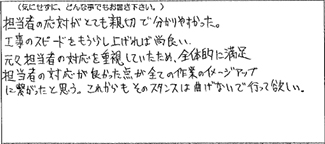 （気にせずに、どんな事でもお書き下さい。）
担当者の応対がとても親切で分かりやすかった。
工事のスピードをもう少し上げれば尚良い。
元々担当者の対応を重視していたため、全体的に満足
担当者の対応が良かった点が全ての作業のイメージアップ
に繋がったと思う。これからもそのスタンスは曲げないで行って欲しい。